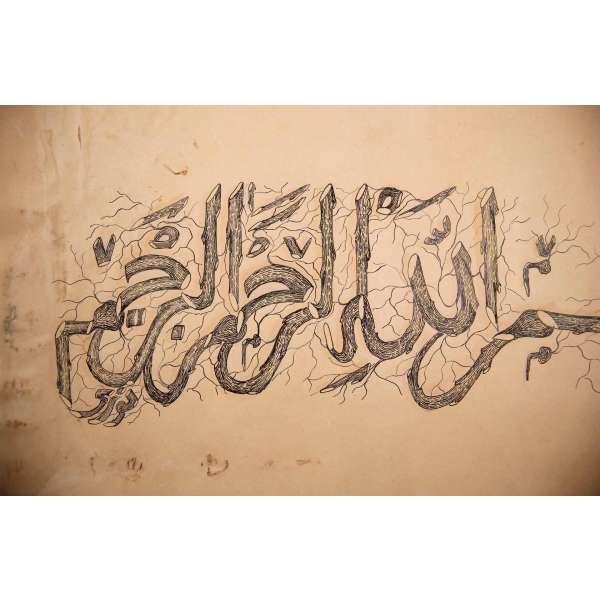 ـم الله الرحمن الرحيم